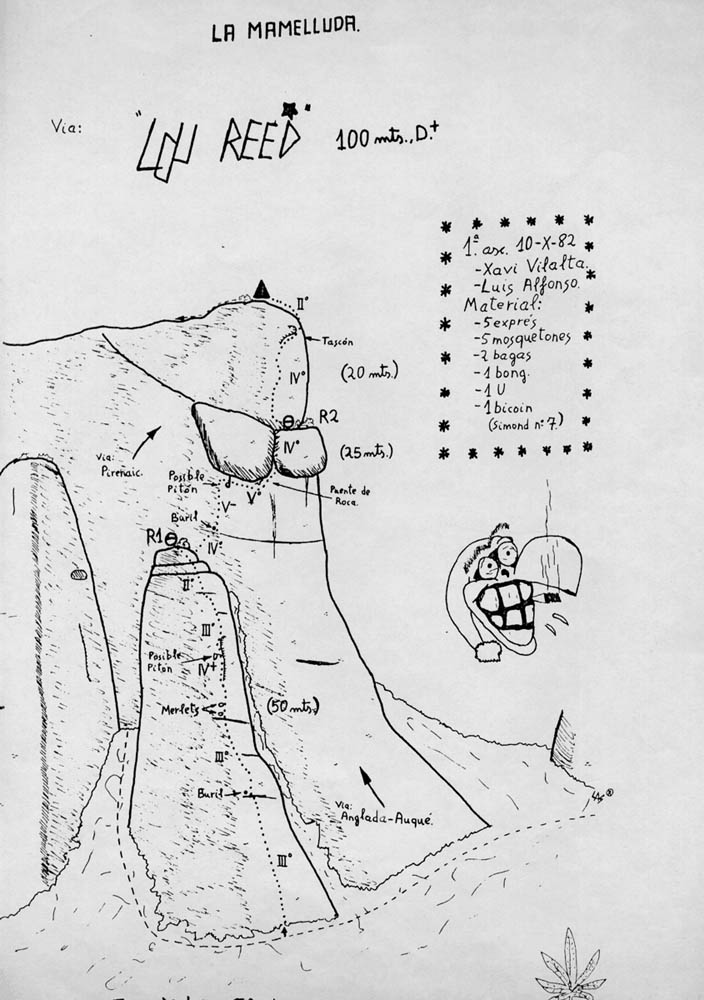 LA MAMELLUDA.
Via:
"LOU REED"
100 mts., D.+
1ª. asc. 10-X-82
-Xavi Vilalta.
-Luis Alfonso.
Material:
-5 exprés
-5 mosquetones
-2 bagas
-1 bong.
-1 U
-1 bicoin
(Simond nº 7.)
II°
Tascón
IV°
(20 mts.)
R2
IV°
(25 mts.)
Via:
Pirenaic.
Posible
Pitón
V°
V-
Puente de
Roca.
Buril
R1
IV°
II°
III°
Posible
Pitón
IV+
Merlets
(50 mts.)
III°
Buril
Via:
Anglada-Augué.
III°